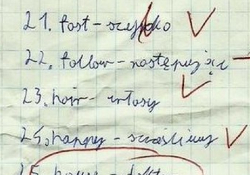 21. fast - szybko
22. follow - następując
23. hair - włosy
24. happy - szczęśliwy
25.